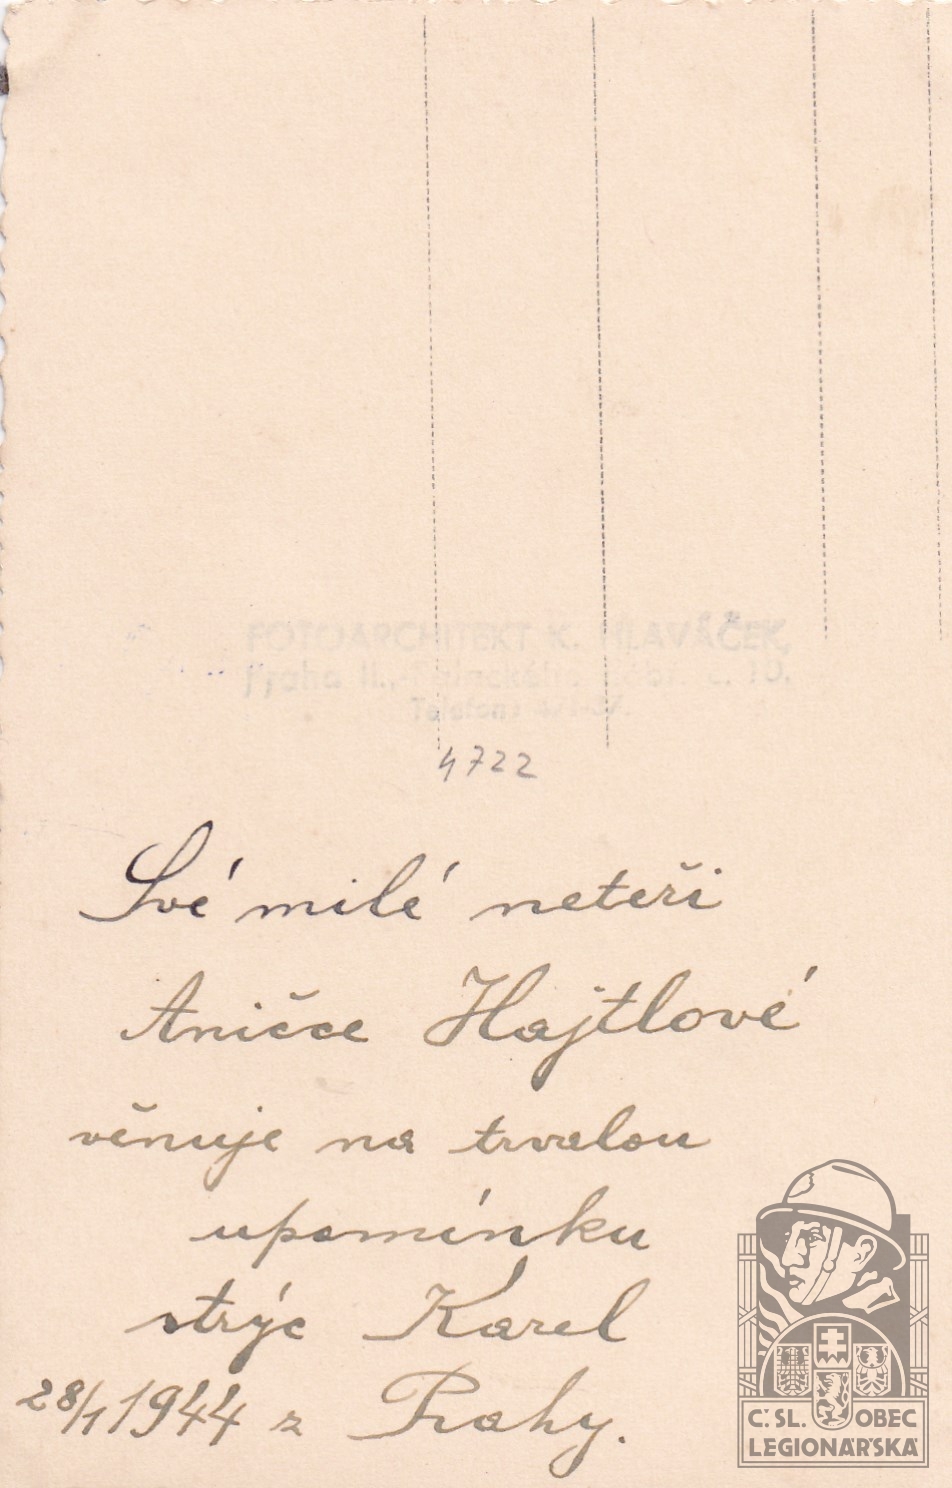 FOTOARCHITEKT K. HLAVÁČEK,
Praha II., Palackého nábř. č. 10.
Telefon
4722
Své milé neteři
Aničce Hajtlové
věnuje na trvalou
upomínku
strýc Karel
28/1 1944 z Prahy.
Č. SL. OBEC
LEGIONÁŘSKÁ